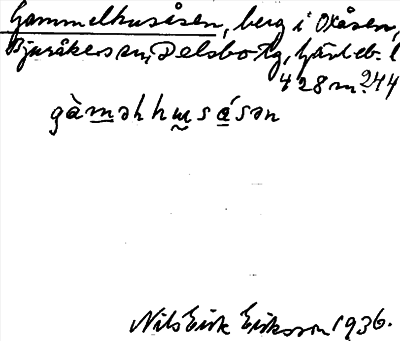 Gammelhusåsen, berg i Oxåsen,
Bjuråkers sn, Delsbo tg, Gävleb. l
428 m. 244
gàməlhʉsåsən
Nils Eirik Eriksson 1936.